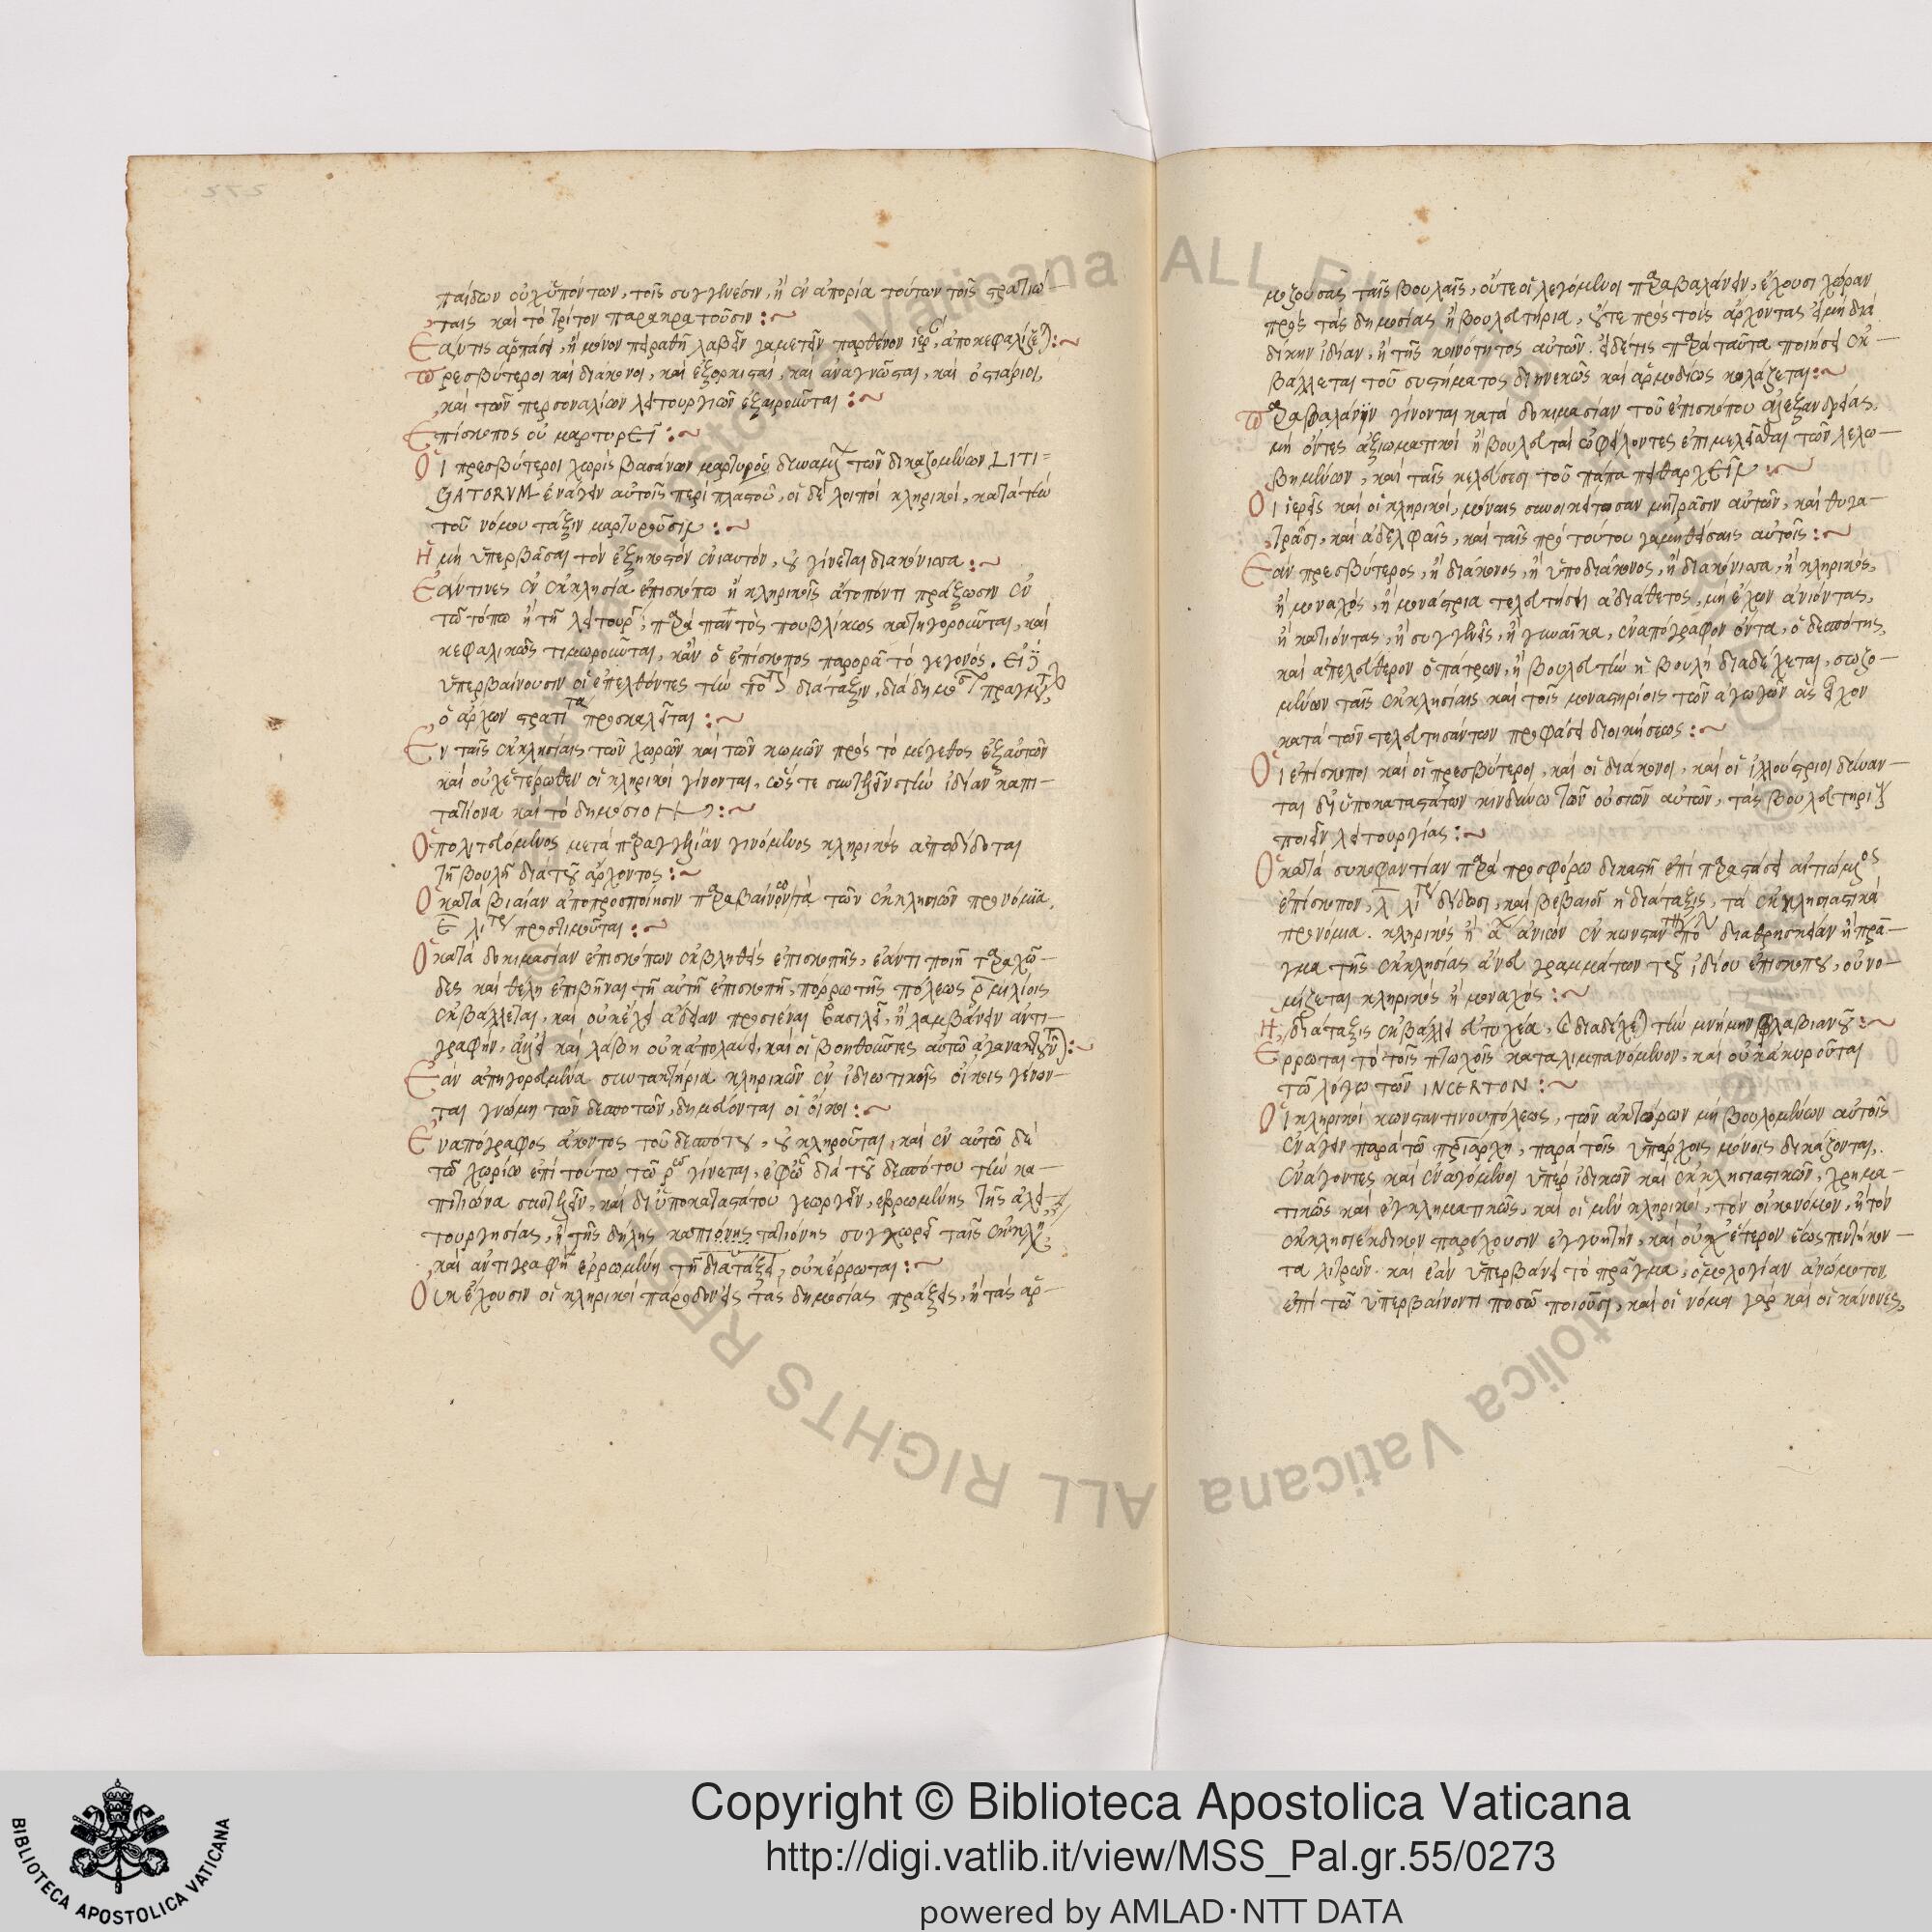 παίδων οὐχ ὑπόντων, τοῖς συγγενέσιν, ἢ ἐν ἀπορία τούτων τοῖς στρατιώ-
ταις καὶ τὸ τρίτον παρακρατοῦσιν :~
Ἐάν τις ἁρπάσει, ἢ μόνον πειραθῆ λαβεῖν γαμετὴν παρθένον ἱερ, ἀποκεφαλίζε) :~
Πρεσβύτεροι καὶ διάκονοι, καὶ ἐξορκισταὶ, καὶ ἀναγνῶσται, καὶ ὀστιάριοι,
καὶ τῶν περσοναλίων λειτουργιῶν ἐξαιροῦνται :~
Ἐπίσκοπος οὐ μαρτυρεῖ :~
Οἱ πρεσβύτεροι χωρὶς βασάνων μαρτυροῦσι δυναμένων τῶν δικαζομένων LITI=
GATORVM ἐνάγειν αὐτοῖς περὶ πλαστοῦ, οἱ δὲ λοιποὶ κληρικοὶ, κατὰ τὴν
τοῦ νόμου τάξιν μαρτυροῦσιν :~
Ἡ μὴ ὑπερβᾶσα τὸν ἑξηκοστὸν ἐνιαυτὸν, οὐ γίνεται διακόνισσα :~
Ἐάν τινες ἐν ἐκκλησία ἐπισκόπω ἢ κληρικοῖς ἄτοπόν τι πράξωσιν ἐν
τῶ τόπω ἢ τῆ λειτουρ, παρὰ παντὸς πουβλίκως κατηγοροῦνται, καὶ
κεφαλικῶς τιμωροῦνται, κἂν ὁ ἐπίσκοπος παρορᾶ τὸ γεγονός. εἰ
ὑπερβαίνουσιν οἱ ἐπελθόντες τὴν διάταξιν, διὰ
ὁ ἄρχων στρατιτα προσκαλεῖται :~
Ἐν ταῖς ἐκκλησίαις τῶν χωρῶν καὶ τῶν κωμῶν πρὸς τὸ μέγεθος ἐξ αὐτῶν
καὶ οὐχ ἑτέρωθεν οἱ κληρικοὶ γίνονται, ὥστε συντελεῖν τὴν ἰδίαν καπι-
τατίονα καὶ τὸ δημόσιον :~
Ὁ πολιτευόμενος μετὰ παραγγελίαν γινόμενος κληρικὸς ἀποδίδοται
τῆ βουλῆ διὰ τοῦ ἄρχοντος :~
Ὁ κατὰ βιαίαν ἀποπροσποίησιν παραβαίνων τὰ τῶν ἐκκλησιῶν προνόμια,
ε λι προστιμοῦται :~
Ὁ κατὰ δοκιμασίαν ἐπισκόπων ἐκβληθεὶς ἐπισκοπῆς, ἐάν τι ποιῆ ταραχῶ-
δες καὶ θέλη ἐπιβῆναι τῆ αὐτῆ ἐπισκοπῆ, πόρρω τῆς πόλεως ρ μιλίοις
ἐκβάλλεται, καὶ οὐκ ἔχει ἄδειαν προσιέναι βασιλεῖ, ἢ λαμβάνειν ἀντι-
γραφὴν, ἀλλὰ καὶ λάβη οὐκ ἀπολαύει, καὶ οἱ βοηθοῦντες αὐτῶ ἀγανακτοῦν) :~
Ἐὰν ἀπηγορευμένα συντακτήρια κληρικῶν ἐν ἰδιωτικοῖς οἴκοις γένων-
ται γνώμη τῶν δεσποτῶν, δημεύονται οἱ οἶκοι :~
Ἐναπόγραφος ἄκοντος τοῦ δεσπότου, οὐ κληροῦται, καὶ ἐν αὐτῶ δὲ
τῶ χωρίω ἐπὶ τούτω τῶ ρω γίνεται, ἐφ' ὧ διὰ τοῦ δεσπότου τὴν κα-
πιτιώνα συντελεῖν, καὶ δι' ὑποκαταστάτου γεωργεῖν, ἐρρωμένης τῆς ἀλει-
τουργησίας, ἢ τῆς δήλης καπιτόνης τατιόνης συγχωρεῖ ταῖς ἐκκλη
καὶ ἀντιγραφῆ ἐρρωμένη τῆ διατάξει, οὐκ ἔρρωται :~
Οὐκ ἔχουσιν οἱ κληρικοὶ παροδονεῖς τὰς δημοσίας πράξεις, ἢ τὰς ἁρ-
μοζούσας ταῖς βουλαῖς, οὔτε οἱ λεγόμενοι παραβαλάνειν, ἔχουσι χώραν
πρὸς τὰς δημοσίας ἢ βουλευτήρια, οὔτε πρὸς τοὺς ἄρχοντας εἰ μὴ διὰ
δίκην ἰδίαν, ἢ τῆς κοινότητος αὐτῶν. εἰ δέ τις παρὰ ταῦτα ποιήσει ἐκ-
βάλλεται τοῦ συστήματος διηνεκῶς καὶ ἁρμοδίως κολάζεται :~
Παραβαλάνιιν γίνονται κατὰ δοκιμασίαν τοῦ ἐπισκόπου ἀλεξανδρείας,
μὴ ὄντες ἀξιωματικοὶ ἢ βουλευταὶ ὀφείλοντες ἐπιμελεῖσθαι τῶν λελω-
βημένων, καὶ ταῖς κελεύσεσι τοῦ πάπα πειθαρχεῖν :~
Οἱ ἱερεῖς καὶ οἱ κληρικοὶ, μόναις συνοικείτωσαν μητράσιν αὐτῶν, καὶ θυγα-
τράσι, καὶ ἀδελφαῖς, καὶ ταῖς πρὸ τούτου γαμηθείσαις αὐτοῖς :~
Ἐὰν πρεσβύτερος, ἢ διάκονος, ἢ ὑποδιάκονος, ἢ διακόνισσα, ἢ κληρικὸς,
ἢ μοναχὸς, ἢ μονάστρια τελευτήσει ἀδιάθετος, μὴ ἔχων ἀνιόντας,
ἢ κατιόντας, ἢ συγγενεῖς, ἢ γυναῖκα, ἐναπόγραφον ὄντα, ὁ δεσπότης,
καὶ ἀπελεύθερον ὁ πάτρων, ἢ βουλευτὴν ἡ βουλὴ διαδέχεται, σωζο-
μένων ταῖς ἐκκλησίαις καὶ τοῖς μοναστηρίοις τῶν ἀγωγῶν ἃς εἶχον
κατὰ τῶν τελευτησάντων προφάσει διοικήσεως :~
Οἱ ἐπίσκοποι καὶ οἱ πρεσβύτεροι, καὶ οἱ διάκονοι, καὶ οἱ ἰλλούστριοι δύναν-
ται δι' ὑποκαταστάτων κινδύνω τῶν οὐσιῶν αὐτῶν, τὰς βουλευτηρι
ποιεῖν λειτουργίας :~
Ὁ κατὰ συκοφαντίαν παρὰ προσφόρω δικαστῆ ἐπὶ παραστάσει αἰτιώμενος
ἐπίσκοπον, λ λι δίδωσι, καὶ βεβαιοῖ ἡ διάταξις, τὰ ἐκκλησιαστικὰ
προνόμια. κληρικὸς ἢ ἀνιὼν ἐν κωνσταν διὰ θρησκείαν ἢ πρᾶ-
γμα τῆς ἐκκλησίας ἄνευ γραμμάτων τοῦ ἰδίου ἐπισκόπου, οὐ νο-
μίζεται κληρικὸς ἢ μοναχός :~
Ἡ διάταξις ἐκβάλλει εὐτυχέα, διαδέχε) τὴν μνήμην φλαβιανοῦ :~
Ἔρρωται τὸ τοῖς πτωχοῖς καταλιμπανόμενον, καὶ οὐκ ἀκυροῦται
τῶ λόγω τῶν INCERTON :~
Οἱ κληρικοὶ κωνσταντινουπόλεως, τῶν ἀκτώρων μὴ βουλομένων αὐτοῖς
ἐνάγειν παρὰ τῶ πριάρχη, παρὰ τοῖς ὑπάρχοις μόνοις δικάζονται,
ἐνάγοντες καὶ ἐναγόμενοι ὑπὲρ ἰδικῶν καὶ ἐκκλησιαστικῶν, χρημα-
τικῶς καὶ ἐγκληματικῶς, καὶ οἱ μὲν κληρικοὶ, τὸν οἰκονόμον, ἢ τὸν
ἐκκλησιέκδικον παρέχουσιν ἐγγυητὴν, καὶ οὐχ ἕτερον ἕως πεντήκον-
τα λιτρῶν. καὶ ἐὰν ὑπερβαίνει τὸ πρᾶγμα, ὁμολογίαν ἀνώμοτον
ἐπὶ τῶ ὑπερβαίνοντι ποσῶ ποιοῦσι, καὶ οἱ νόμοι γὰρ καὶ οἱ κανόνες,
Copyright © Biblioteca Apostolica Vaticana
http://digi.vatlib.it/view/MSS_Pal.gr.55/0273
powered by AMLAD·NTT DATA
BIBLIOTECA APOSTOLICA VATICANA